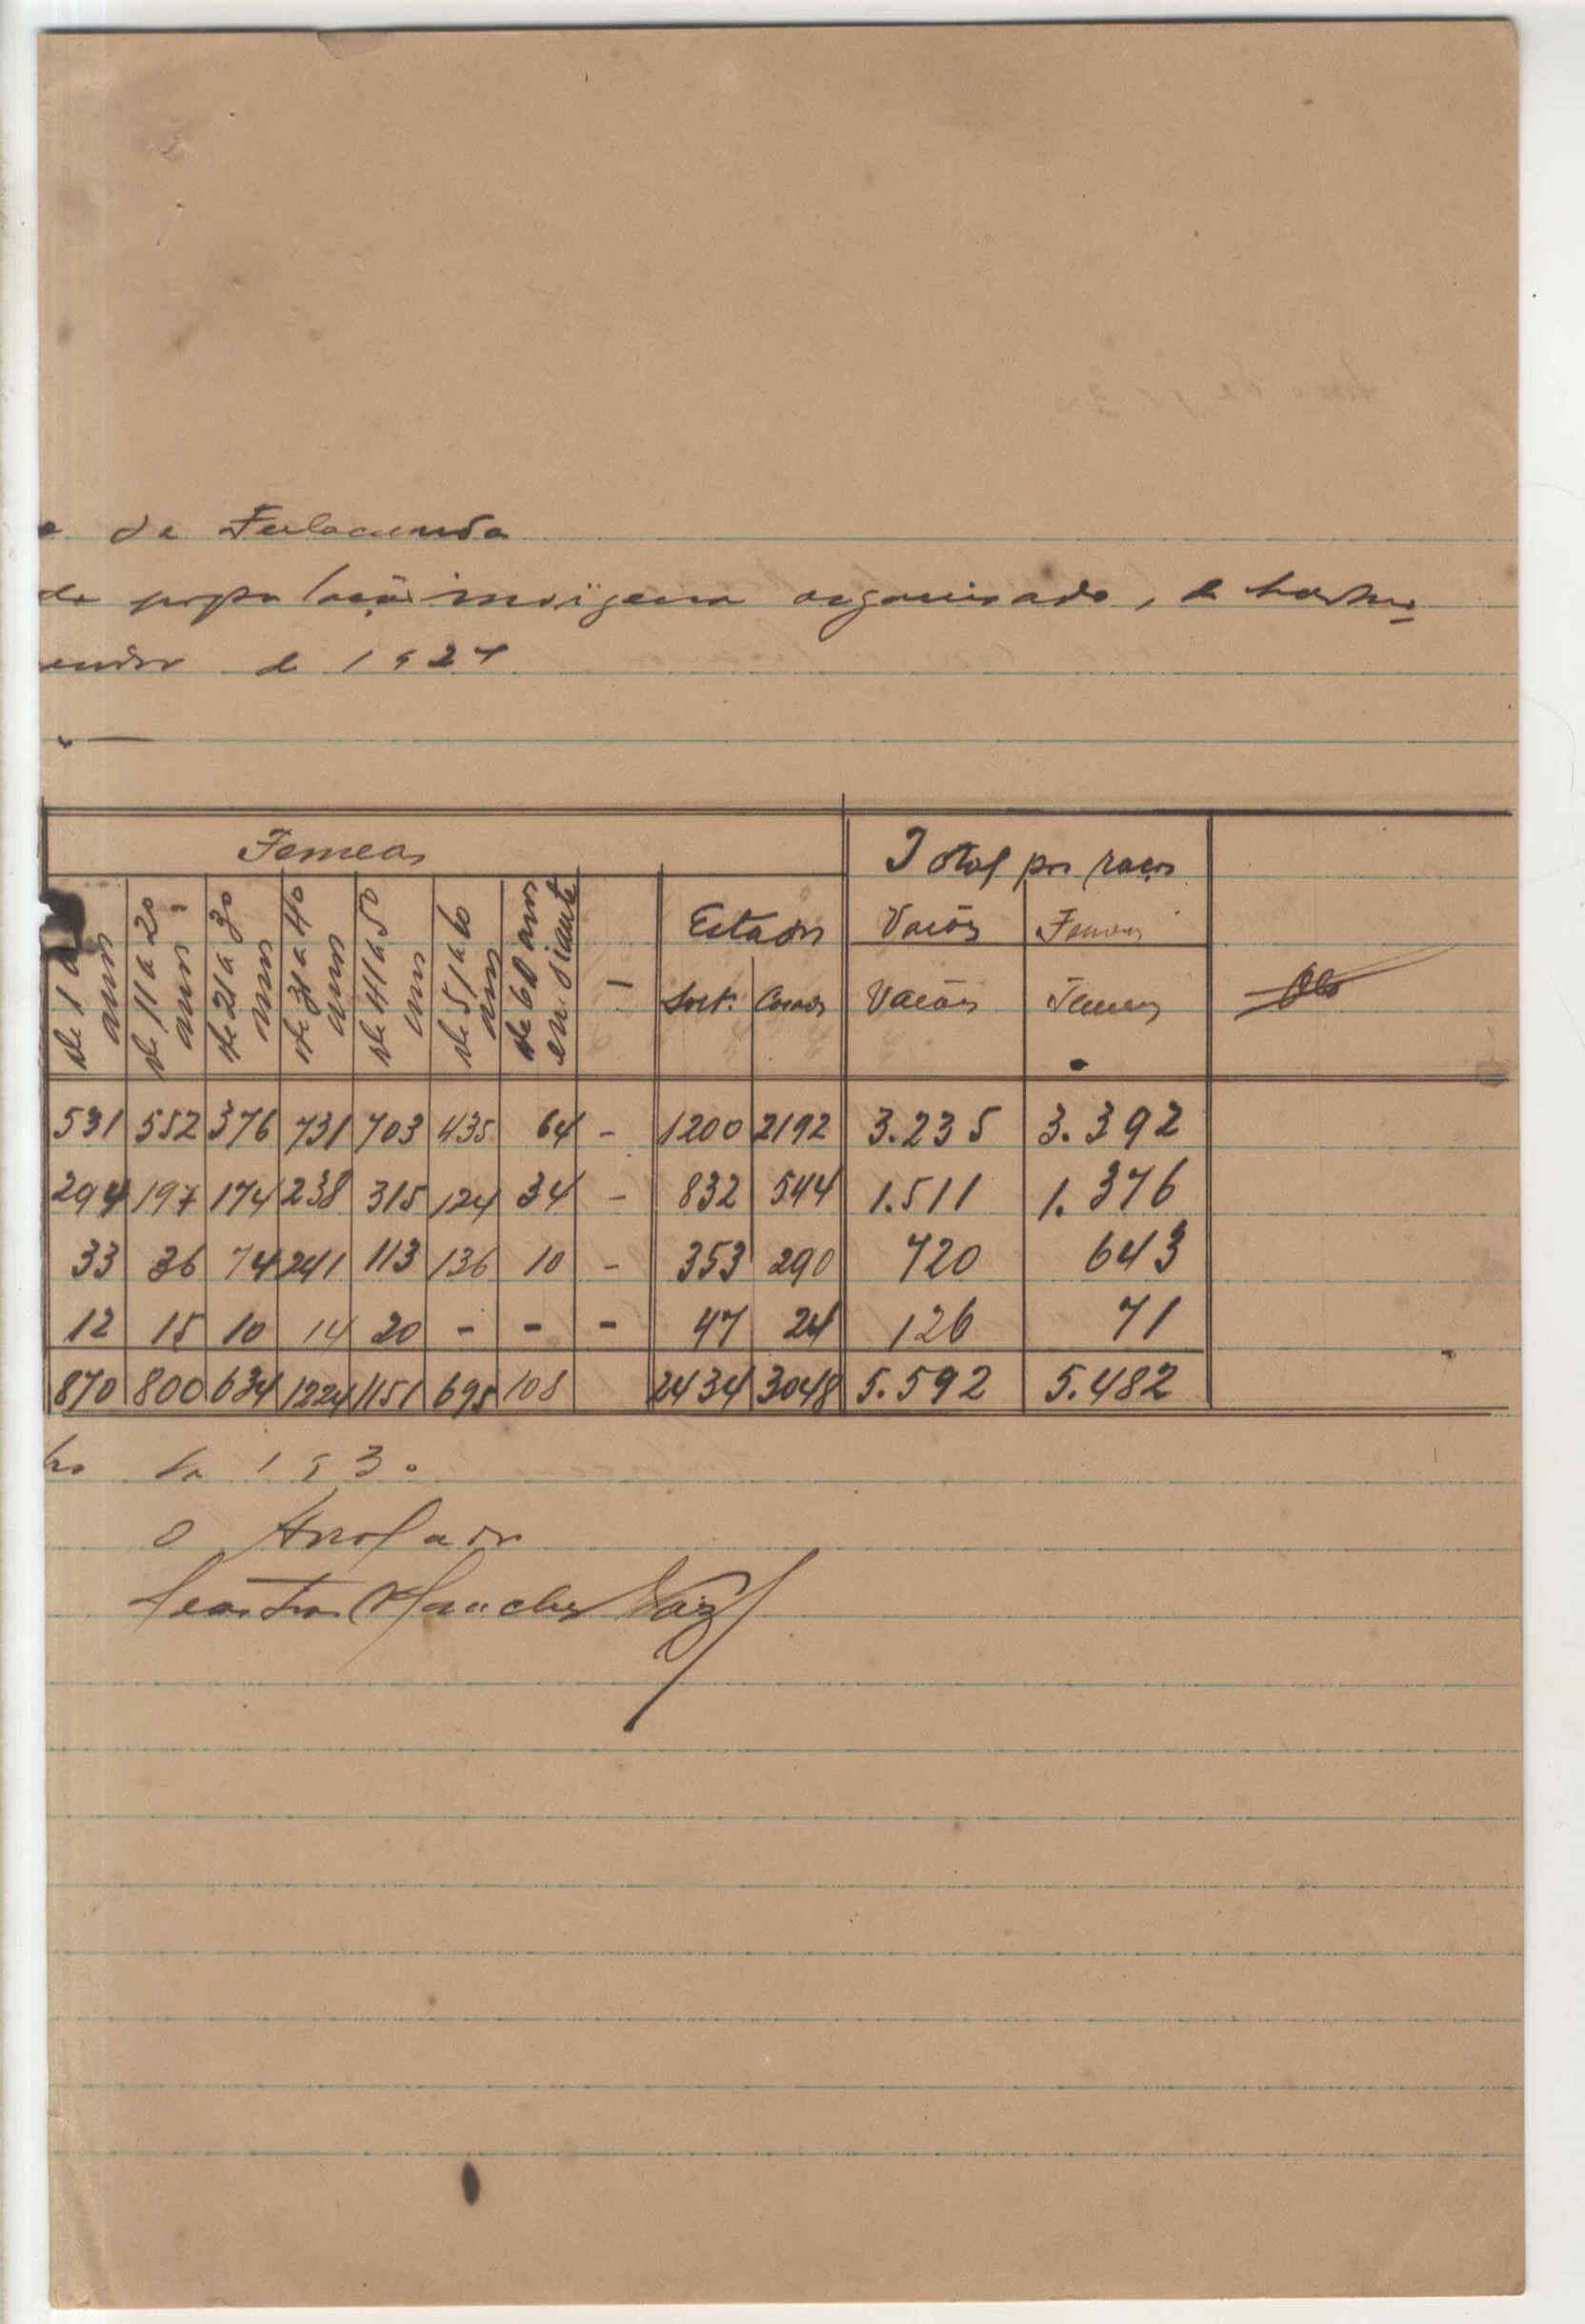 de Fulacunda
de população indígena organisado, de harmo-
de 1927
Femeas
Total por raças
de 1 a anos
de 11 a 20 anos
de 21 a 30 anos
de 31 a 40 anos
de 41 a 50 anos
de 51 a 60 anos
de 60 anos em diante
-
Estados
Varões Femeas
Solt. Casados Varões Femeas Obs
531 552 376 731 703 435 64 - 1200 2192 3.235 3.392
294 197 174 238 315 124 34 - 832 544 1.511 1.376
33 36 74 241 113 136 10 - 353 290 720 643
12 15 10 14 20 - - - 47 24 126 71
870 800 634 1224 1151 695 108 2434 3048 5.592 5.482
de 1930
O Arrolador